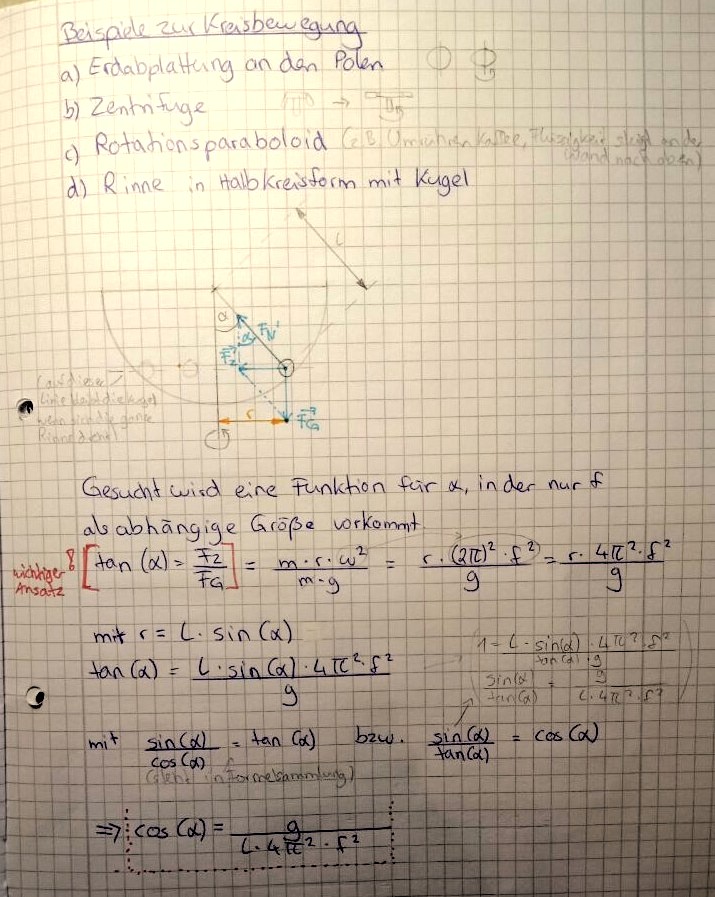 Beispiele zur Kreisbewegung
a) Erdabplattung an den Polen
b) Zentrifuge
c) Rotationsparaboloid (z.B. Umrühren Kaffee, Flüssigkeit steigt an der
Wand nach oben)
d) Rinne in Halbkreisform mit Kugel
L
α
F_N'
α
F_Z
(auf dieser
Linie bleibt die Kugel
wenn sich die ganze
Rinne dreht)
r
F_G
Gesucht wird eine Funktion für α, in der nur f
als abhängige Größe vorkommt
wichtiger Ansatz ! [tan (α) = F_Z/F_G] = m·r·ω²/m·g = r·(2π)²·f²/g = r·4π²·f²/g
mit r = L · sin(α)
tan(α) = L·sin(α)·4π²·f²/g
(1 = L·sin(α)·4π²·f²/tan(α)·g
sin(α)/tan(α) = g/L·4π²·f²)
mit sin(α)/cos(α) = tan(α) bzw. sin(α)/tan(α) = cos(α)
(steht in Formelsammlung)
⇒ cos(α) = g/L·4π²·f²